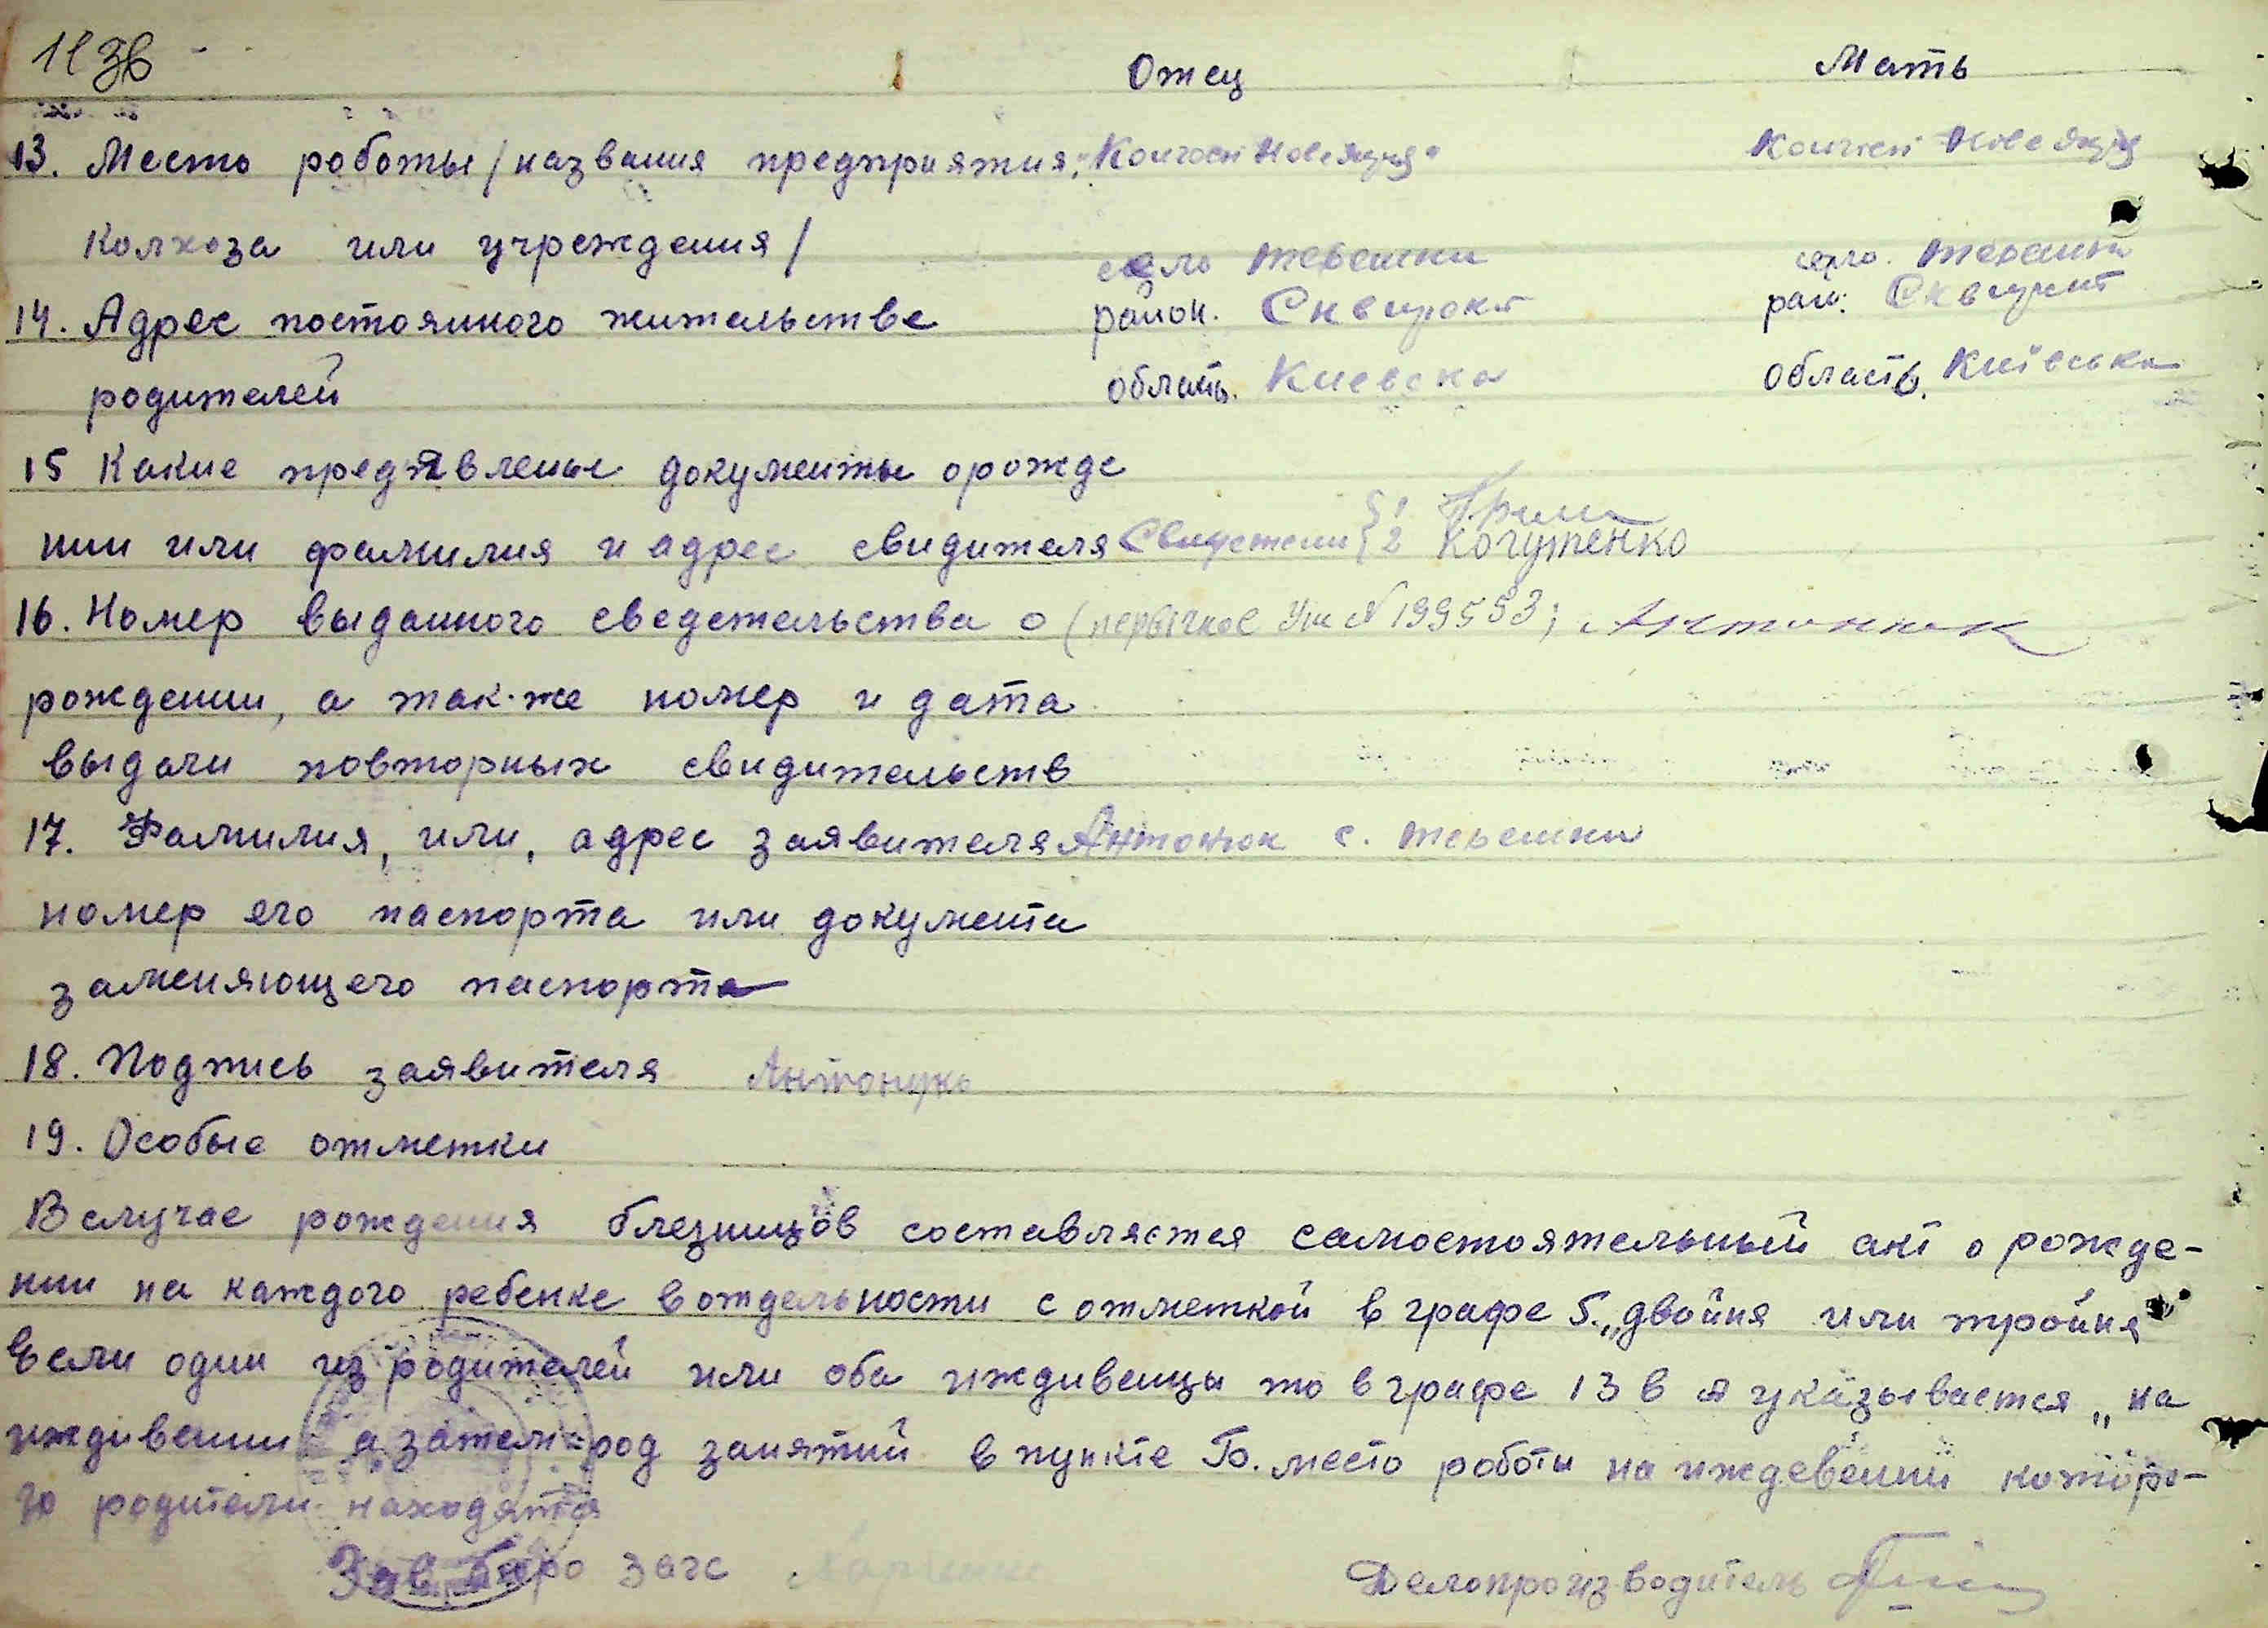 11 зв
Отец Мать
13. Место роботы / названия предприятия, Колгосп Нове Колгосп Нове
колхоза или учреждения /
село Терешки село. Терешки
14. Адрес постоянного жительстве район. Сквирский рай.
родителей область. Киевска область. Київська
15 Какие предявлены документы орожде
1
нии или фамилия и адрес свидителя Свидетели 2 Когутенко
16. Номер выданного сведетельства о (первичное № 199553; Антонюк
рождении, а так-же номер и дата
выдачи повторных свидительств
17. Фамилия, или, адрес заявителя Антонюк с. Терешки
номер его паспорта или документа
заменяющего паспорта
18. Подпись заявителя Антонукь
19. Особые отметки
В случае рождения близницов составляется самостоятельный акт о рожде-
нии на каждого ребенке в отдельности с отметкой в графе 5. „двойня или тройня"
Если один из родителей или оба иждивенцы то в графе 13 в а указывается „на
иждивении а затем род занятий в пункте Го. место роботы на иждевении которо-
го родители находятся
Зав. бюро загс
Делопроизводитель